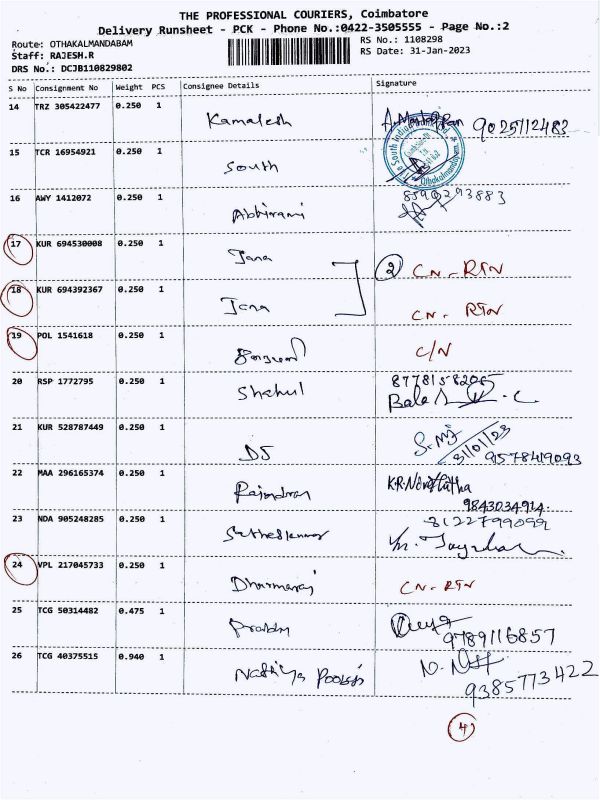 THE PROFESSIONAL COURIERS, Coimbatore
Delivery Runsheet - PCK - Phone No.:0422-3505555 - Page No.:2
Route: OTHAKALMANDABAM
RS No.: 1108298
Staff: RAJESH.R
RS Date: 31-Jan-2023
DRS No.: DCJB110829802
S No Consignment No Weight PCS Consignee Details Signature
14 TRZ 305422477 0.250 1 Kamalesh 9025112483
15 TCR 16954921 0.250 1 South
The South Indian Bank Ltd
Othakalmandapam
16 AWY 1412072 0.250 1 Abhirami 8590293883
17 KUR 694530008 0.250 1 Jana 2 CN-RTN
18 KUR 694392367 0.250 1 Jana CN-RTN
19 POL 1541618 0.250 1 C/N
20 RSP 1772795 0.250 1 Shahul
Bala
21 KUR 528787449 0.250 1 DS 31/01/23
9578419093
22 MAA 296165374 0.250 1 Rajendran K.R.
9843034914
23 NDA 905248285 0.250 1 8122799099
24 VPL 217045733 0.250 1 Dharmaraj CN-RTN
25 TCG 50314482 0.475 1 Prabhu
9789116857
26 TCG 40375515 0.940 1 Nathiya
9385773422
4